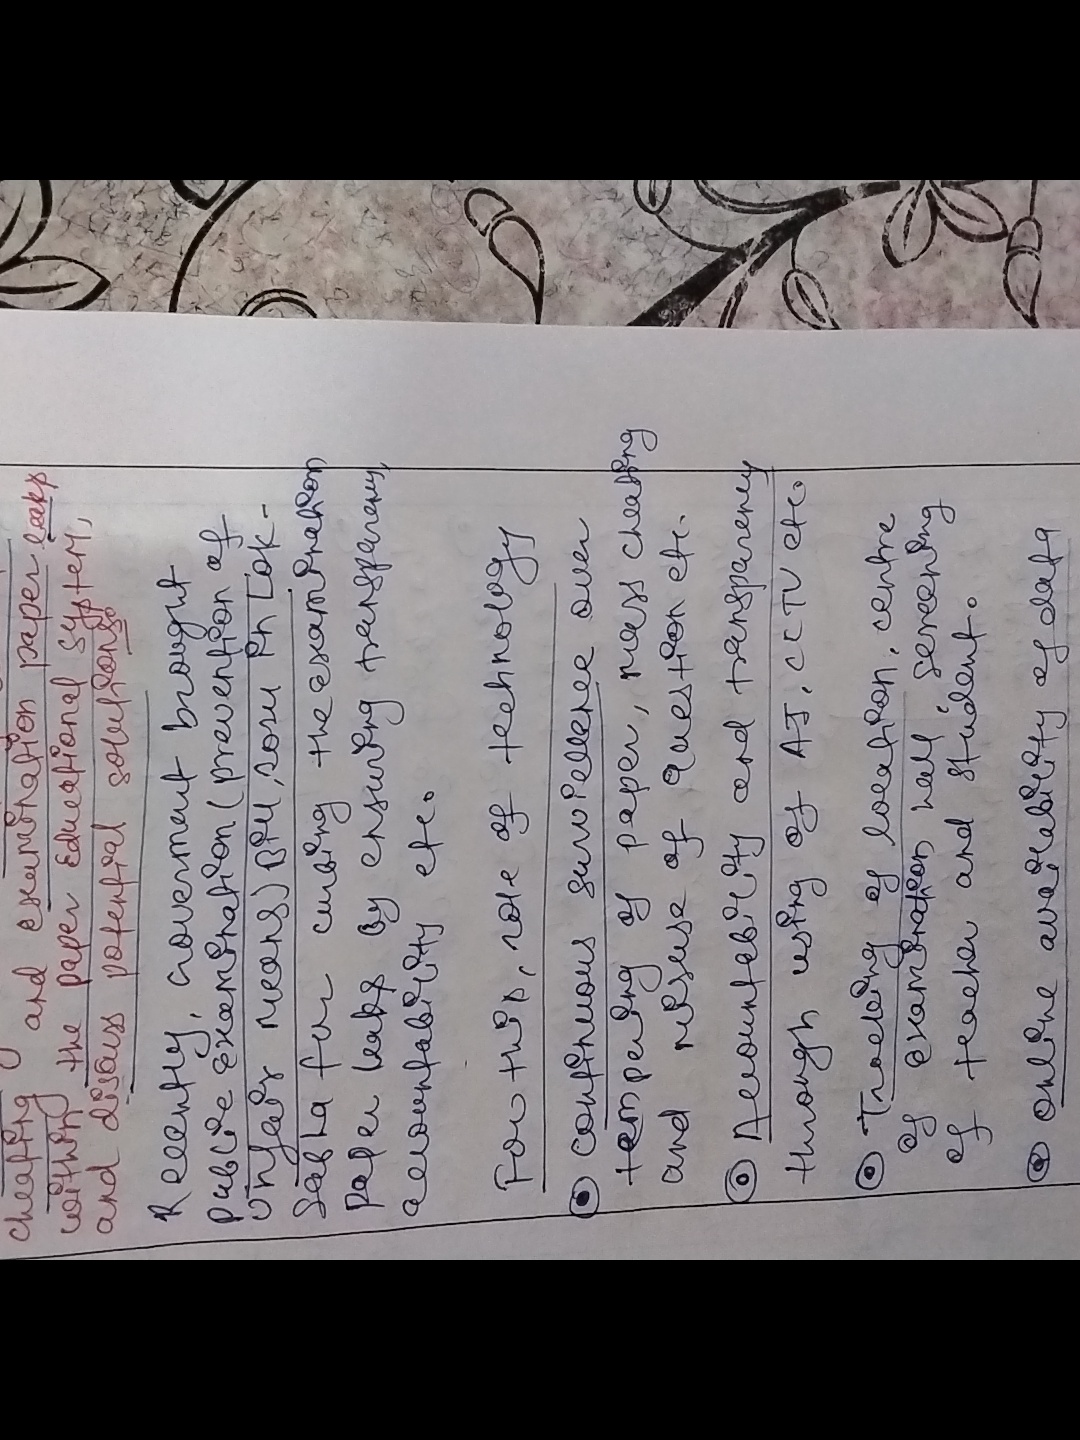 cheating and examination paper leaks
within the paper Educational system,
and discuss potential solutions.
Recently, Government brought
public Examination (prevention of
Unfair means) Bill, 2024 in Lok-
Sabha for curbing the examination
Paper leaks by ensuring transparency,
accountability etc.
For this, role of technology
continuous survellence over
tempering of paper, mass cheating
and misuse of question etc.
Accountability and transparency
through using of AI, CCTV etc.
Tracking of location, centre
of examination hall, screening
of teacher and student.
online availability of data